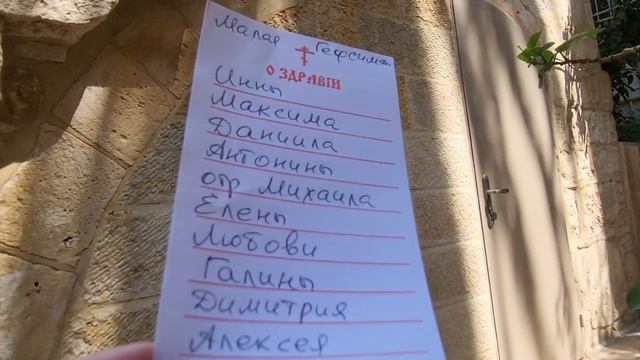 Малая Гефсимани
О ЗДРАВІИ
Инны
Максима
Даниила
Антонины
отр Михаила
Елены
Любови
Галины
Димитрия
Алексея